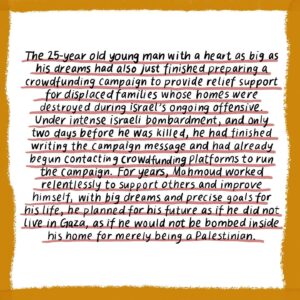 The 25-year old young man with a heart as big as
his dreams had also just finished preparing a
crowdfunding campaign to provide relief support
for displaced families whose homes were
destroyed during Israel's ongoing offensive.
Under intense israeli bombardment, and only
two days before he was killed, he had finished
writing the campaign message and had already
begun contacting crowdfunding platforms to run
the campaign. For years, Mahmoud worked
relentlessly to support others and improve
himself, with big dreams and precise goals for
his life, he planned for his future as if he did not
live in Gaza, as if he would not be bombed inside
his home for merely being a Palestinian.